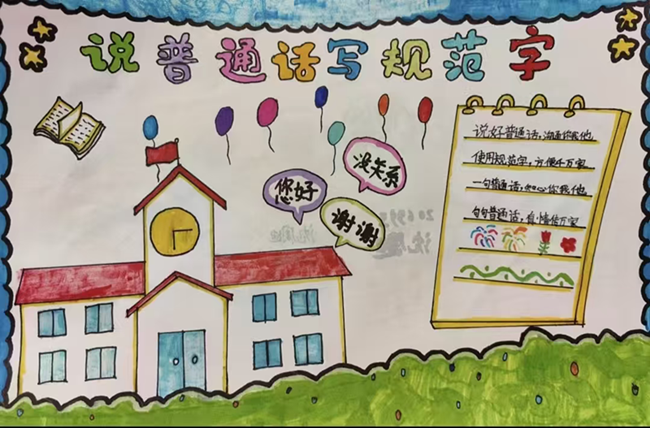 说普通话写规范字
没关系
您好
谢谢
说好普通话，沟通你我他
使用规范字，方便千万家
一句普通话，知心你我他
句句普通话，真情传万家